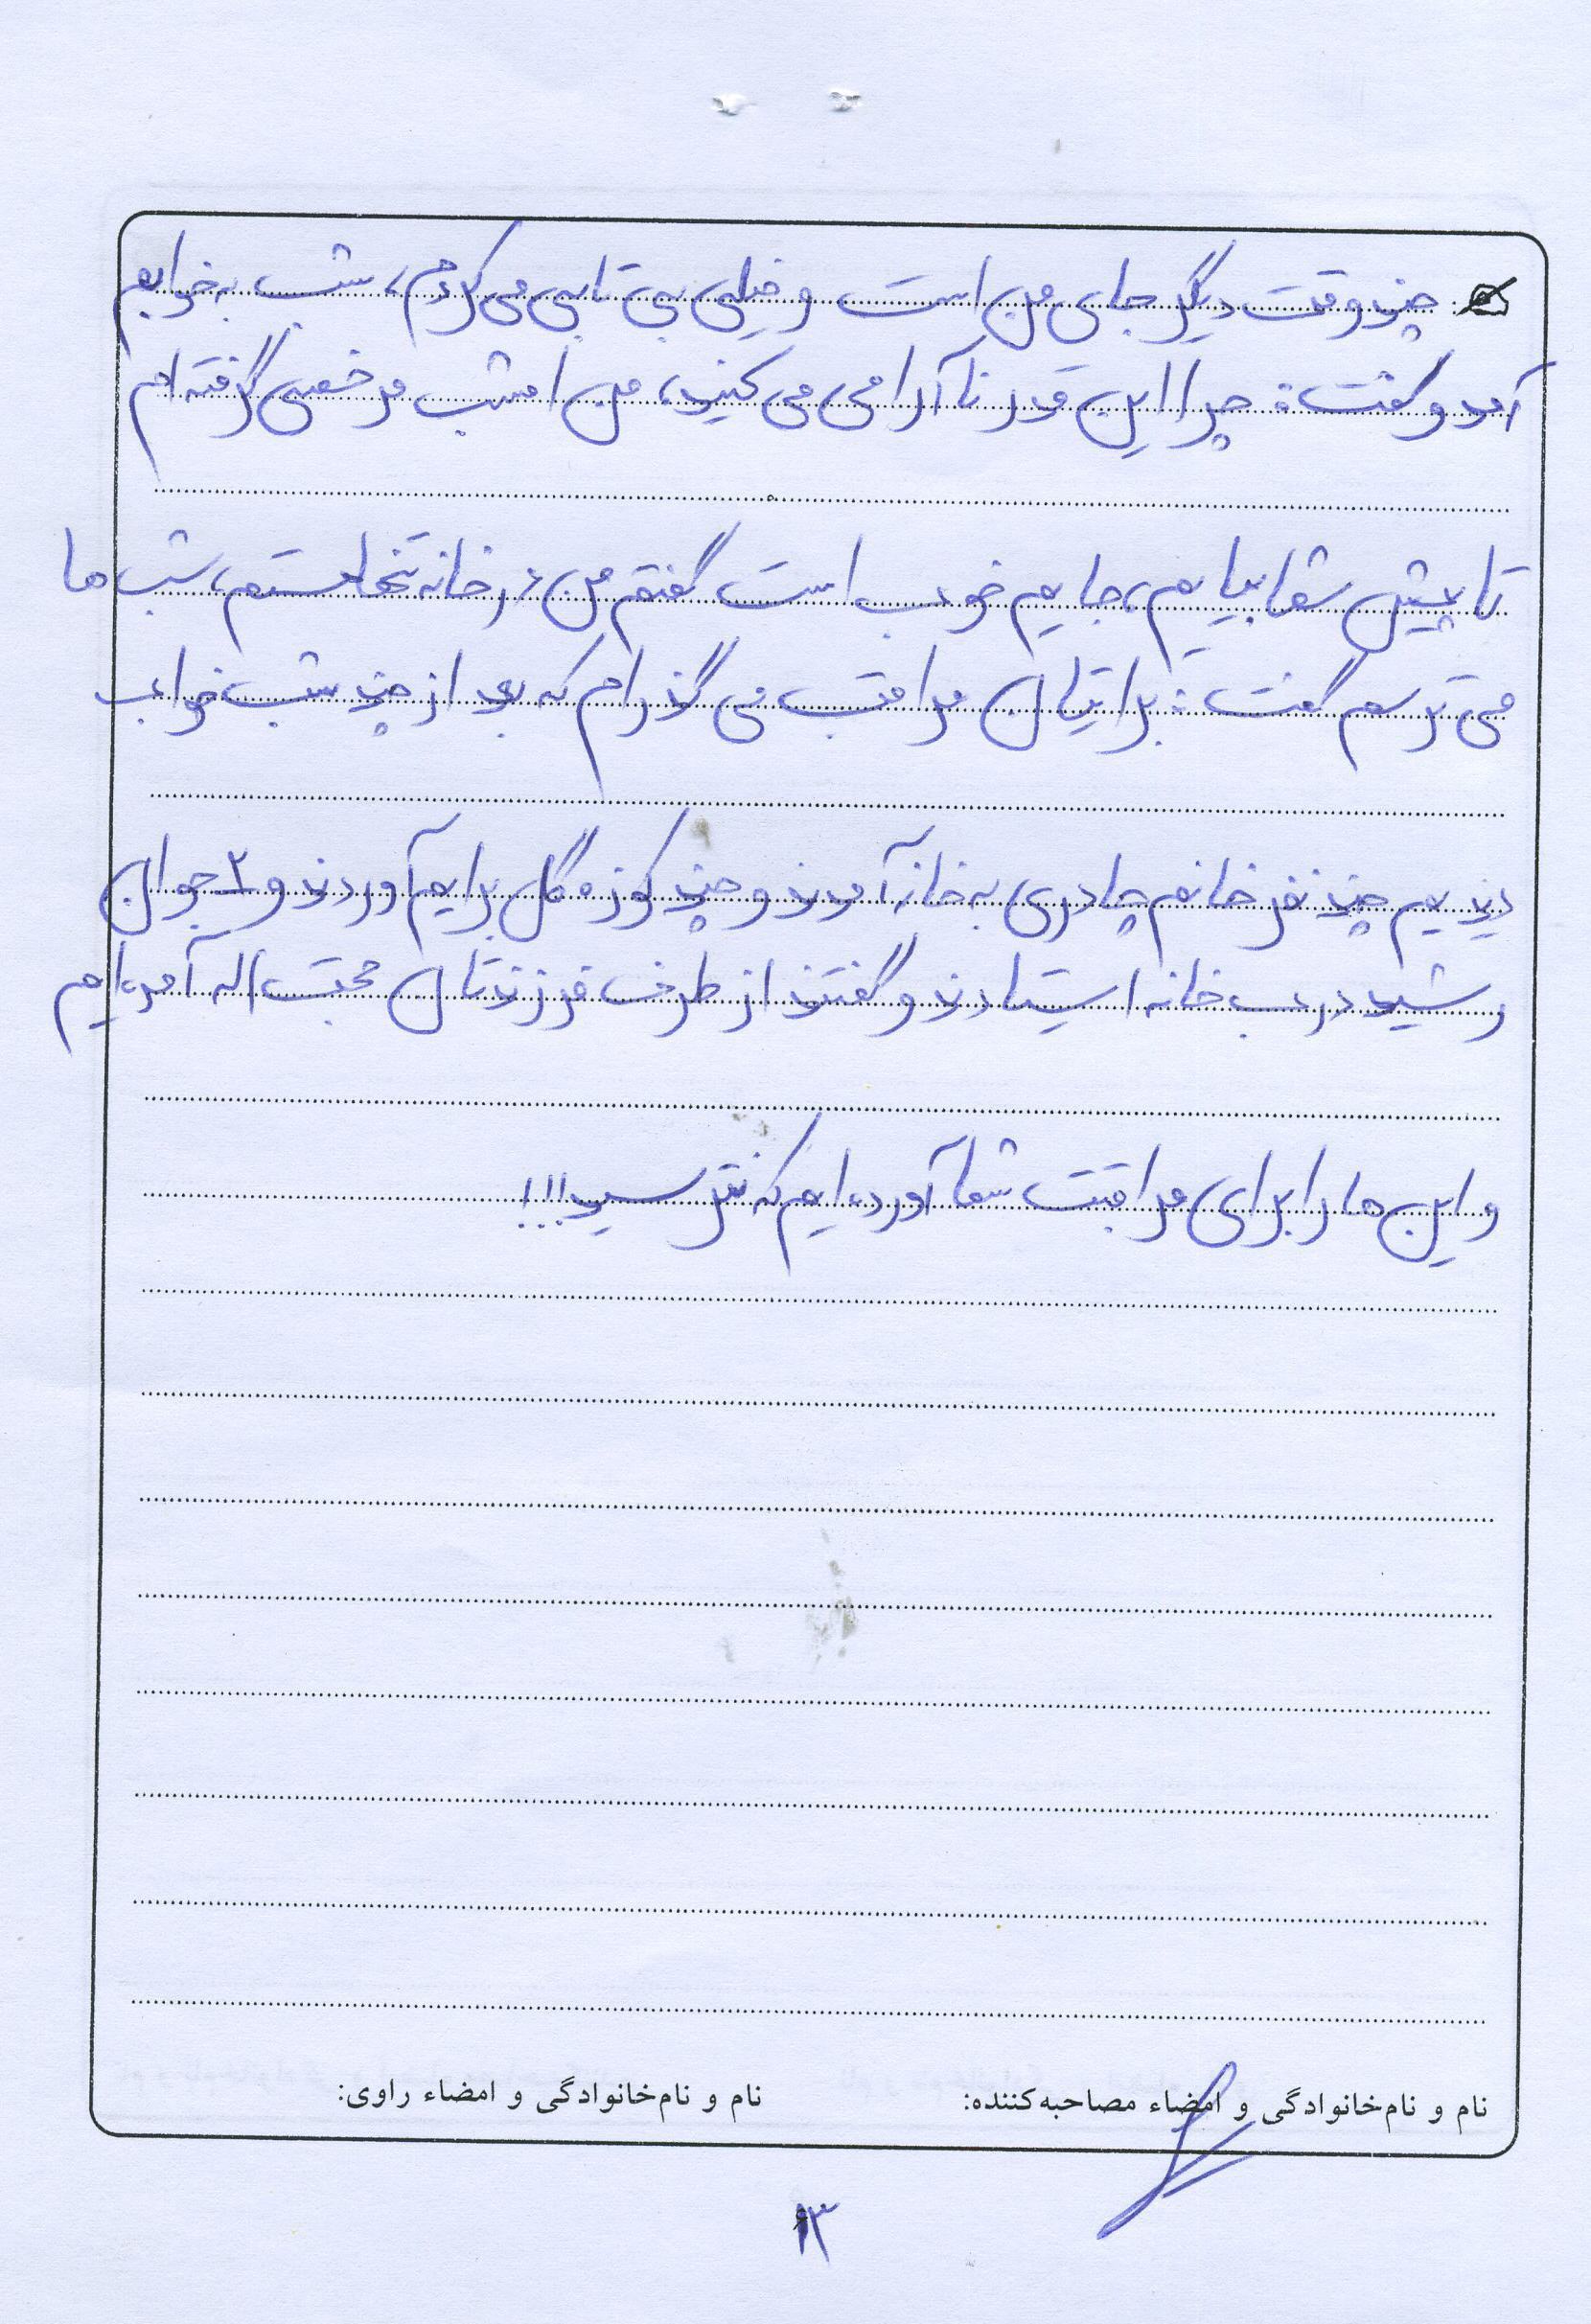 چند وقت دیگر جای من است و خیلی بی تابی می کردم، شب به خوابم
آمد و گفت: چرا این قدر ناآرامی می کنید، من امشب مرخصی گرفته ام
تا پیش شما بیایم، جایم خوب است گفتم من در خانه تنها هستم، شب ها
می ترسم گفت: براتیان مراقب می گذارم که بعد از چند شب خواب
دیدیم چند نفر خانم چادری به خانه آمدند و چند کوزه گل برایم آوردند و ۲ جوان
رشید درب خانه ایستادند و گفتند از طرف فرزندتان محبت اله آمده ایم
و این ها را برای مراقبت شما آورده ایم که نترسید!!!
نام و نام‌خانوادگی و امضاء مصاحبه‌کننده:
نام و نام‌خانوادگی و امضاء راوی:
۱۳